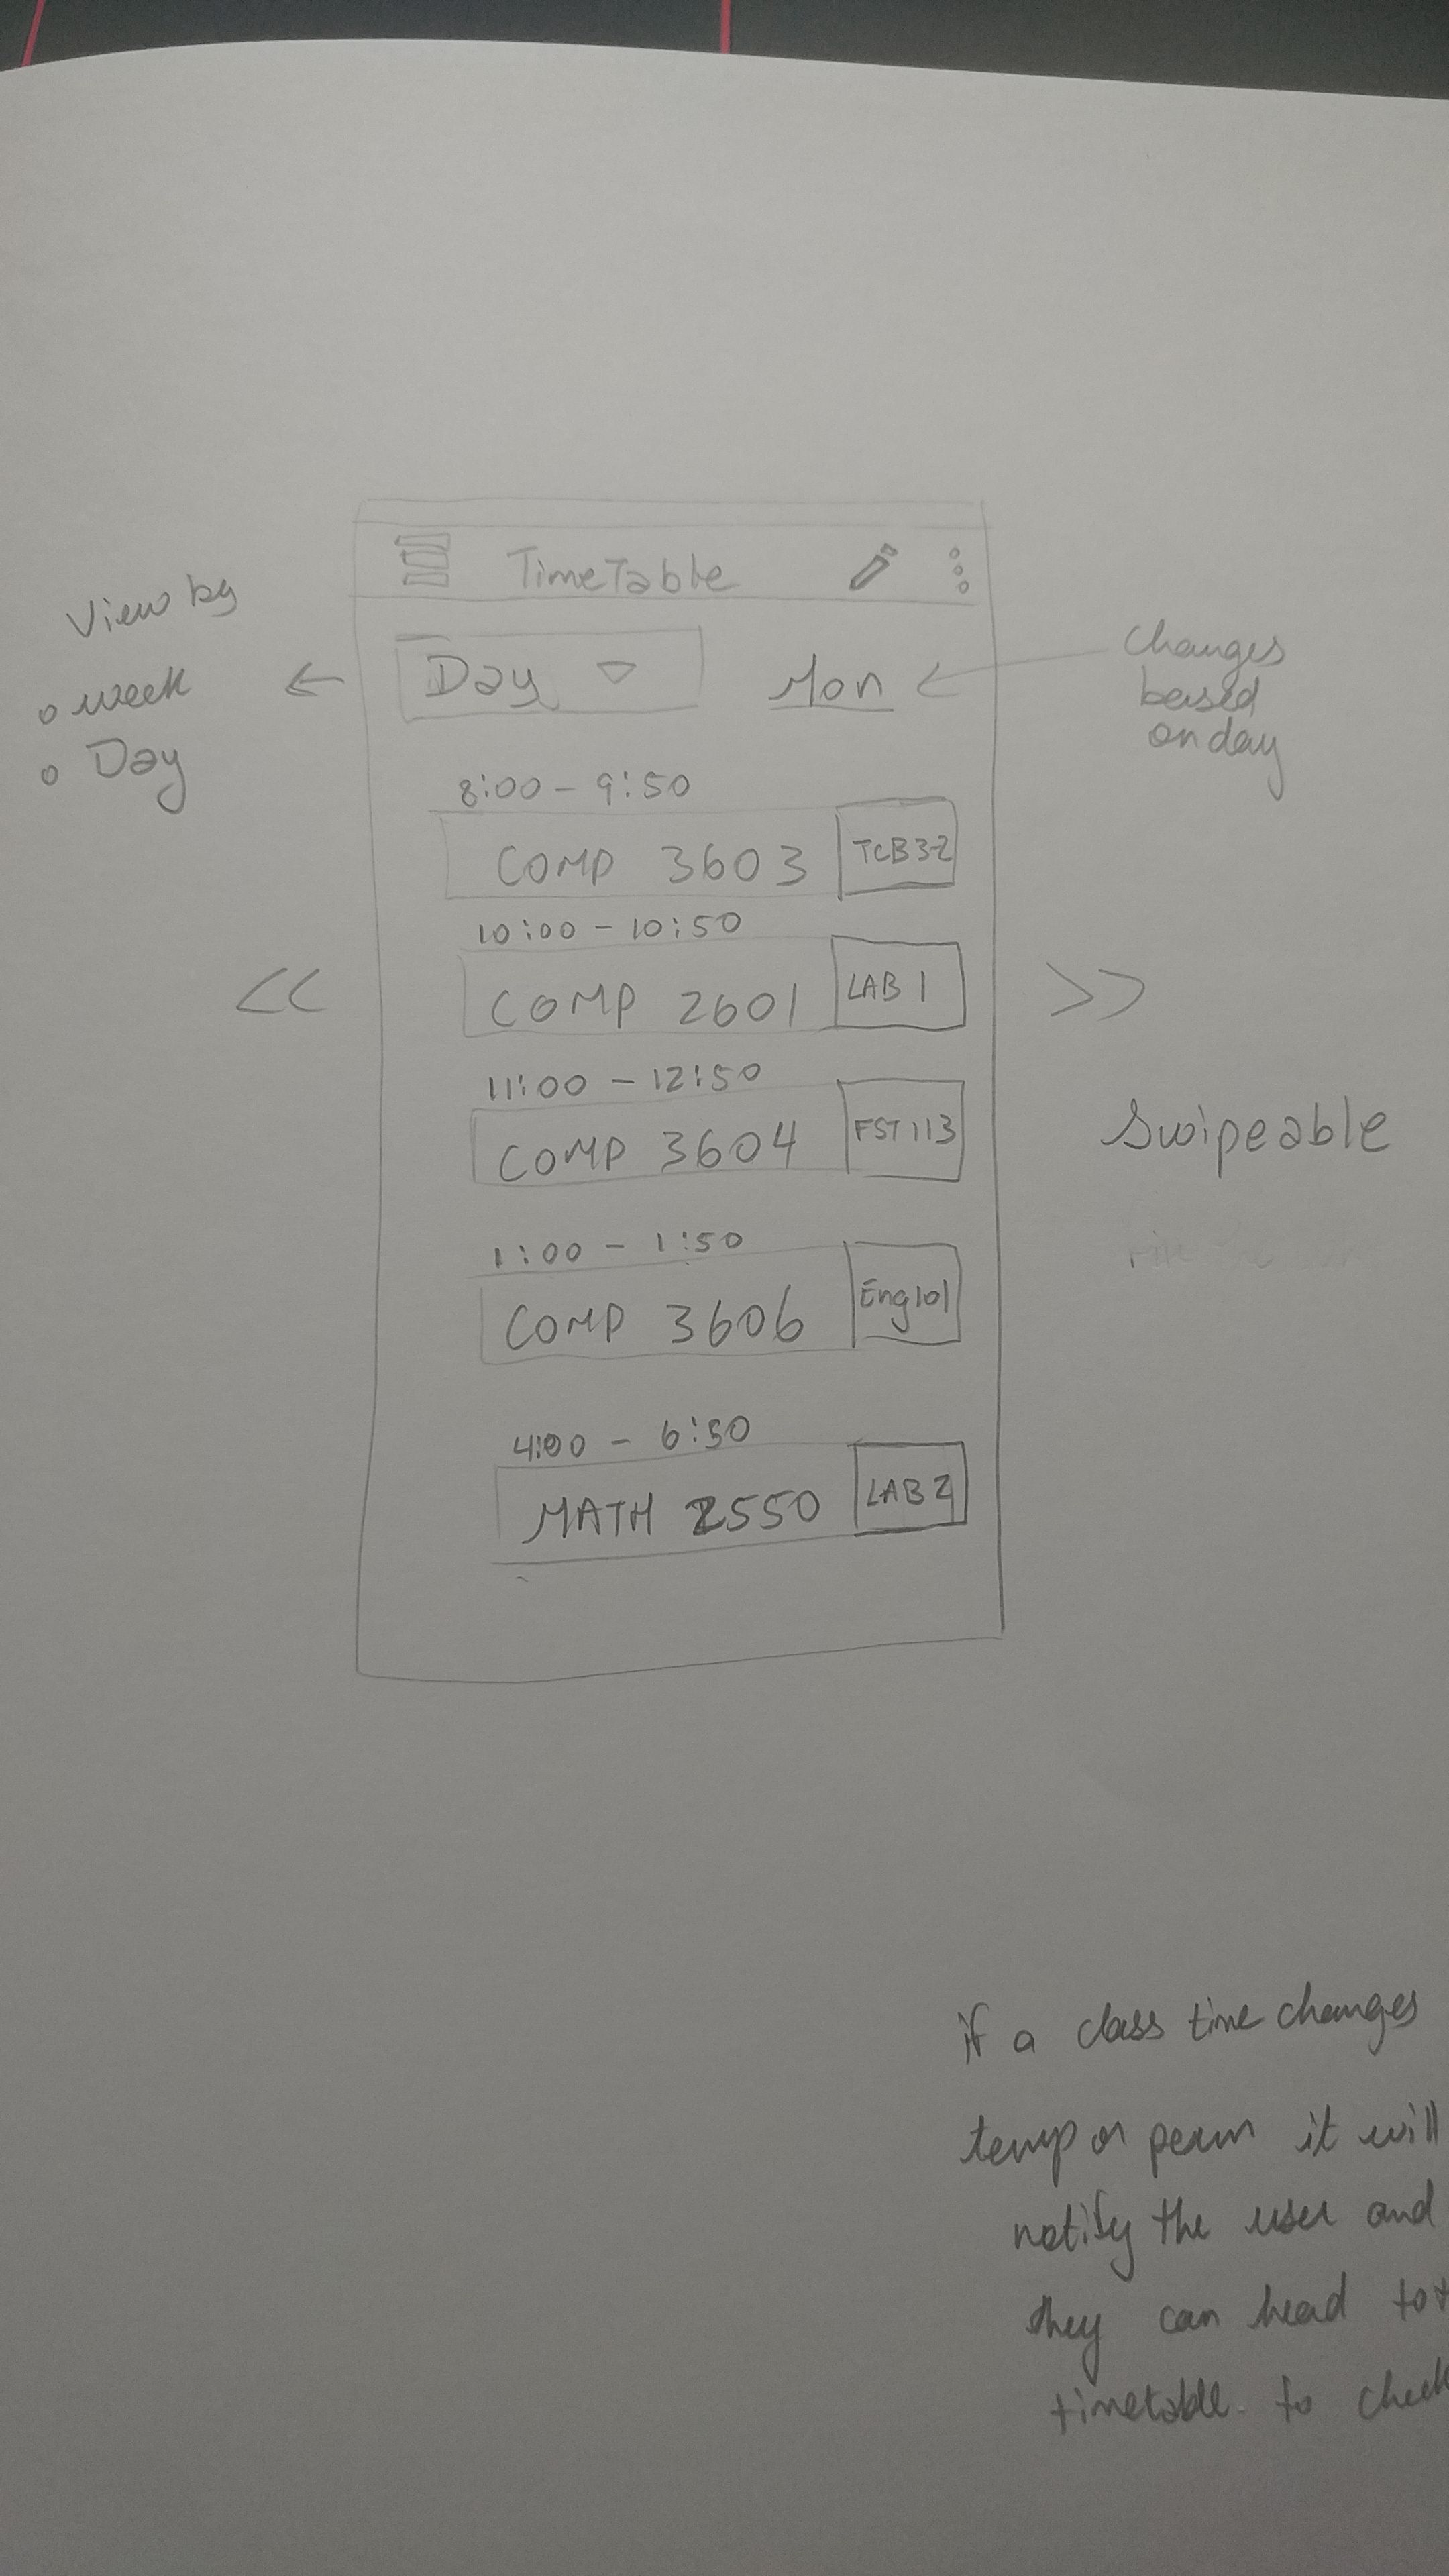 TimeTable
View by
week
Day
Day
Mon
Changes
based
on day
8:00 - 9:50
COMP 3603
TCB32
10:00 - 10:50
COMP 2601
LAB 1
<<
>>
11:00 - 12:50
COMP 3604
FST 113
Swipeable
1:00 - 1:50
COMP 3606
Eng101
4:00 - 6:50
MATH 2550
LAB 2
if a class time changes
temp or perm it will
notify the user and
they can head to
timetable. to check